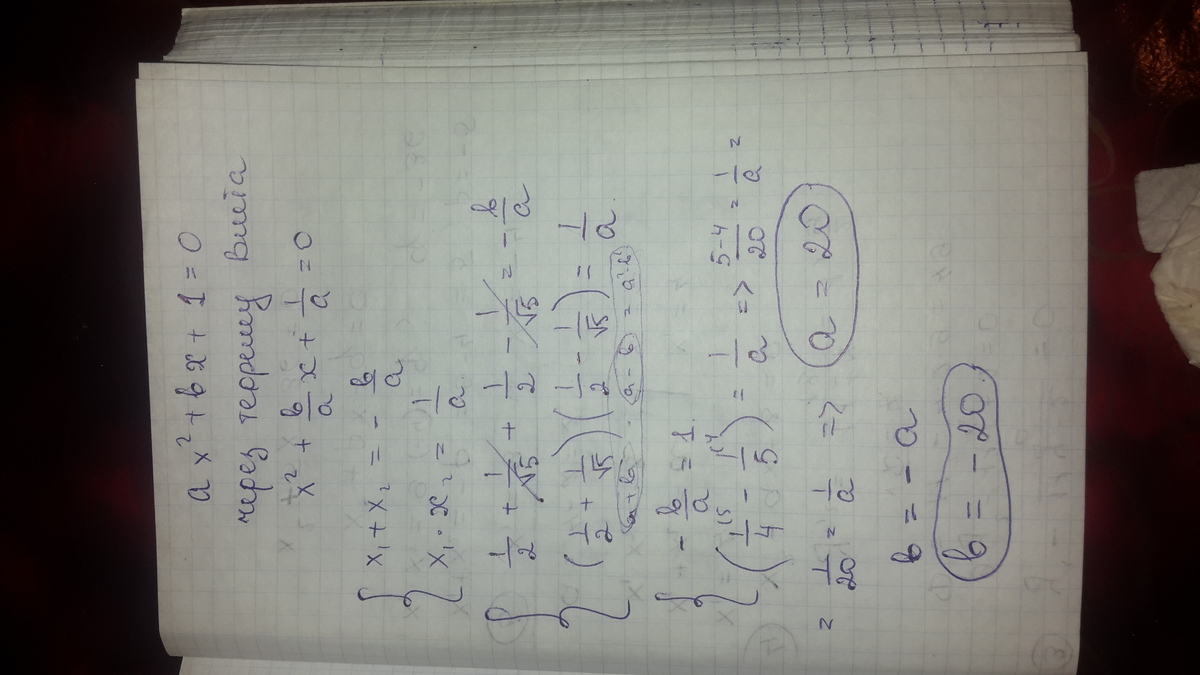 ax² + bx + 1 = 0
через теорему Виета
x² + b/a x + 1/a = 0
{ x₁ + x₂ = - b/a
x₁ · x₂ = 1/a.
{ 1/2 + 1/√5 + 1/2 - 1/√5 = - b/a
(1/2 + 1/√5)(1/2 - 1/√5) = 1/a.
a+b · a-b = a²-b²
{ - b/a = 1.
(1/4 ⁽⁵ - 1/5 ⁽⁴) = 1/a => 5-4/20 = 1/a =
= 1/20 = 1/a => a = 20.
b = - a
b = - 20.